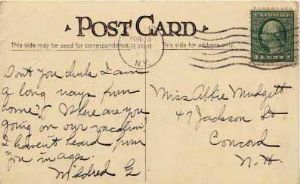 POST CARD
This side may be used for correspondence
This side for address only.
N.Y.
Don't you think I am
a long ways from
home? Where are you
going on your vacation?
I haven't heard from
you in ages.
Mildred G
Miss Abbie Mudgett
47 Jackson St
Concord
N.H.